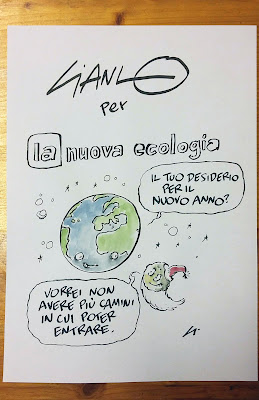 GIANLO
per
la nuova ecologia
IL TUO DESIDERIO
PER IL
NUOVO ANNO?
VORREI NON
AVERE PIÙ CAMINI
IN CUI POTER
ENTRARE.